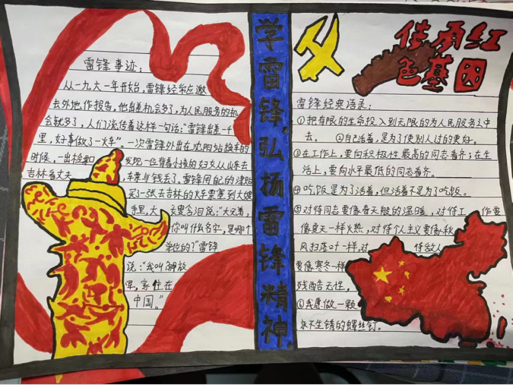 雷锋事迹:
从一九六一年开始,雷锋经常应邀
去外地作报告,他出差机会多了,为人民服务的机
会就多了,人们流传着这样一句话:“雷锋出差一千
里,好事做了一火车”。一次雷锋外出在沈阳站换车的
时候,一出检票
发现一位背着小孩的妇女从山东去
吉林看丈夫
车票与钱丢了,雷锋用自己的津贴
买了一张去吉林的火车票塞到大嫂
手里,大
含着泪说:“大兄弟,
你叫什么名字,是哪个
单位的?”雷锋
说:“我叫解放
军,家住在
中国。”
学雷锋,弘扬雷锋精神
传承红
色基因
雷锋经典语录:
①把有限的生命投入到无限的为人民服务之中
去。②自己活着,是为了使别人过的更好。
③在工作上,要向积极性最高的同志看齐;在生
活上,要向水平最低的同志看齐。
④吃饭是为了活着,但活着不是为了吃饭。
⑤对待同志要像春天般的温暖,对待工作要
像夏天一样火热,对待个人主义要像秋
风扫落叶一样,对
待敌人
要像寒冬一样
残酷无情。
⑥我愿做一颗
永不生锈的螺丝钉。